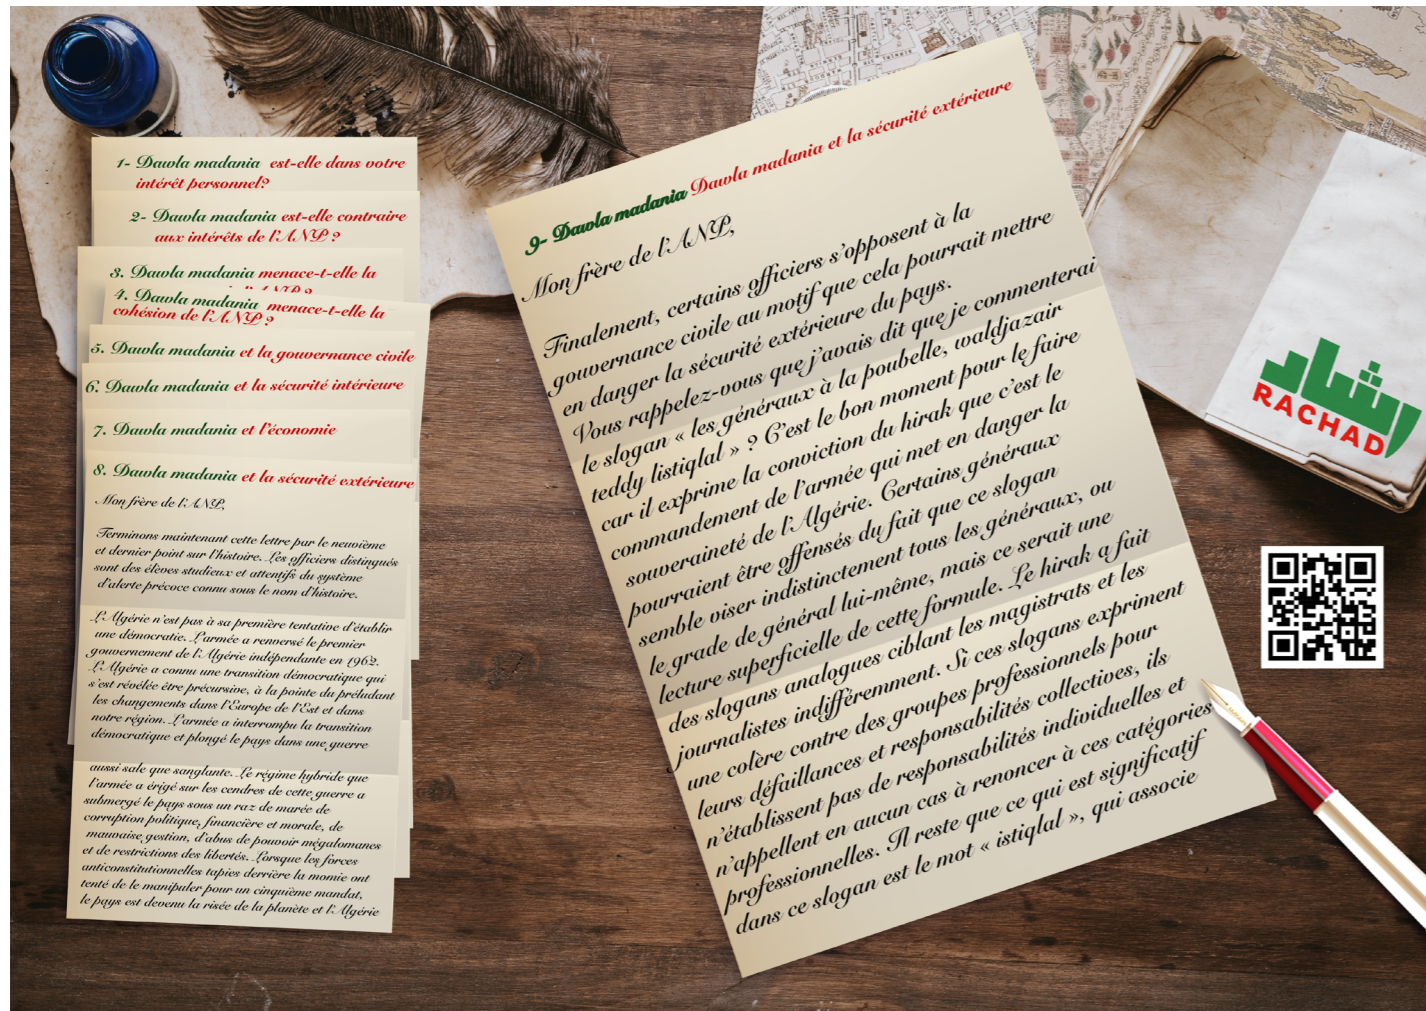 1- Dawla madania est-elle dans votre
intérêt personnel?
2- Dawla madania est-elle contraire
aux intérêts de l'ANP ?
3. Dawla madania menace-t-elle la
4. Dawla madania menace-t-elle la
cohésion de l'ANP ?
5. Dawla madania et la gouvernance civile
6. Dawla madania et la sécurité intérieure
7. Dawla madania et l'économie
8. Dawla madania et la sécurité extérieure
Mon frère de l'ANP,
Terminons maintenant cette lettre par le neuvième
et dernier point sur l'histoire. Les officiers distingués
sont des élèves studieux et attentifs du système
d'alerte précoce connu sous le nom d'histoire.
L'Algérie n'est pas à sa première tentative d'établir
une démocratie. L'armée a renversé le premier
gouvernement de l'Algérie indépendante en 1962.
L'Algérie a connu une transition démocratique qui
s'est révélée être précursive, à la pointe du préludant
les changements dans l'Europe de l'Est et dans
notre région. L'armée a interrompu la transition
démocratique et plongé le pays dans une guerre
aussi sale que sanglante. Le régime hybride que
l'armée a érigé sur les cendres de cette guerre a
submergé le pays sous un raz de marée de
corruption politique, financière et morale, de
mauvaise gestion, d'abus de pouvoir mégalomanes
et de restrictions des libertés. Lorsque les forces
anticonstitutionnelles tapies derrière la momie ont
tenté de le manipuler pour un cinquième mandat,
le pays est devenu la risée de la planète et l'Algérie
9- Dawla madania Dawla madania et la sécurité extérieure
Mon frère de l'ANP,
Finalement, certains officiers s'opposent à la
gouvernance civile au motif que cela pourrait mettre
en danger la sécurité extérieure du pays.
Vous rappelez-vous que j'avais dit que je commenterai
le slogan « les généraux à la poubelle, waldjazair
teddy listiqlal » ? C'est le bon moment pour le faire
car il exprime la conviction du hirak que c'est le
commandement de l'armée qui met en danger la
souveraineté de l'Algérie. Certains généraux
pourraient être offensés du fait que ce slogan
semble viser indistinctement tous les généraux, ou
le grade de général lui-même, mais ce serait une
lecture superficielle de cette formule. Le hirak a fait
des slogans analogues ciblant les magistrats et les
journalistes indifféremment. Si ces slogans expriment
une colère contre des groupes professionnels pour
leurs défaillances et responsabilités collectives, ils
n'établissent pas de responsabilités individuelles et
n'appellent en aucun cas à renoncer à ces catégories
professionnelles. Il reste que ce qui est significatif
dans ce slogan est le mot « istiqlal », qui associe
رشاد
RACHAD